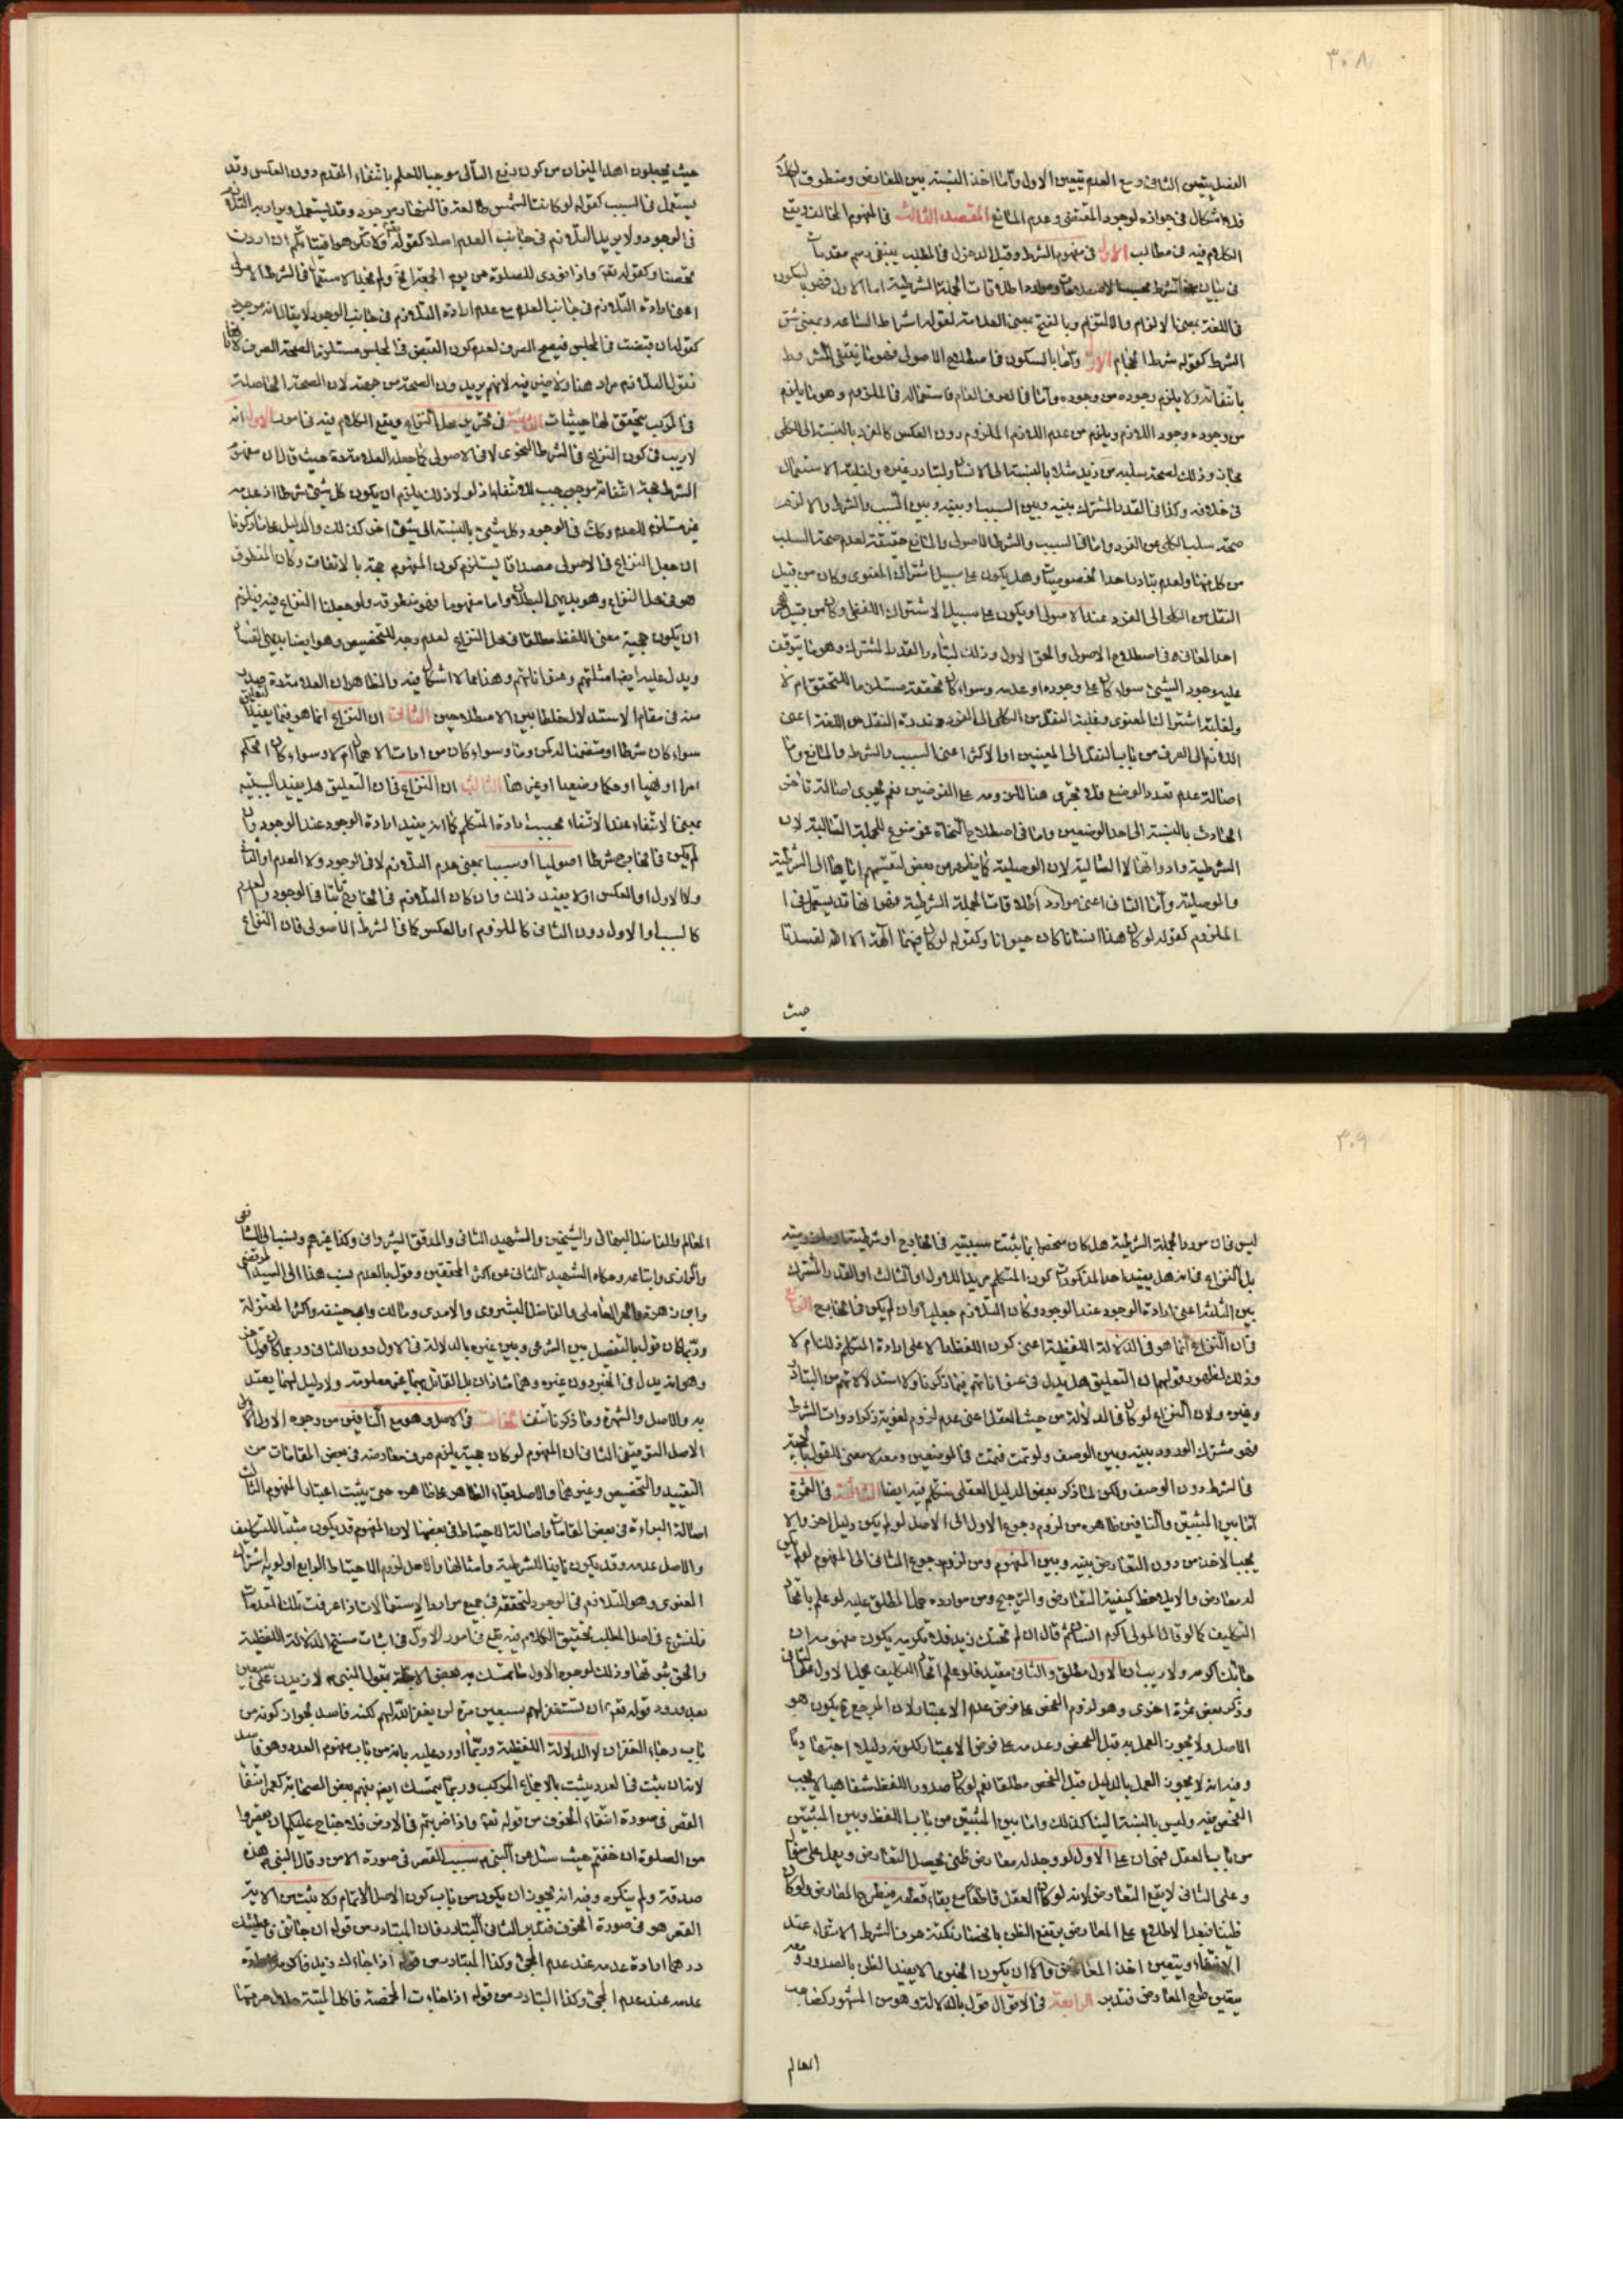 ٣٠٨
الفصل يتعين الثانى ومع العدم يتعين الاول واما اخذ النسبة بين المفاهيم ومنطوق
فلا اشكال فى جوازه لوجود المقتضى وعدم المانع المقصد الثالث فى المفهوم المخالف ويقع
الكلام فيه فى مطالب الاول فى مفهوم الشرط وقبل الدخول فى المطلب ينبغى رسم مقدمات
فى بيان الشرط بحسب اطلاقات الجملة الشرطية اما الاول فهو بالسكون
فى اللغة بمعنى الالزام والالتزام وبالفتح بمعنى العلامة لقوله اشراط الساعة وبمعنى شق
الشرط كقوله شرط الحجام واما بالسكون فى اصطلاح الاصولى فهو ما ينتفى المشروط
بانتفائه ولا يلزم وجوده من وجوده واما فى العرف العام فاستعماله فى الملزوم وهو ما يلزم
من وجوده وجود اللازم ويلزم من عدم اللازم الملزوم دون العكس كالفرد بالنسبة الى الكلى
مجاز وذلك لصحة سلبه عن زيد مثلا بالنسبة الى الانسان ولتبادر غيره ولغلبة الاستعمال
فى خلافه وكذا فى القدر المشترك بينه وبين السبب او بينه وبين السبب والشرط والا لزم
صحة سلب الكلى عن الفرد واما فى السبب والشرط الاصولى والمانع حقيقة لعدم صحة السلب
من كل منها ولعدم تبادر احدا لخصوصيات وهل يكون على سبيل اشتراك المعنوى وكان من قبيل
النقل من الكلى الى الفرد عند الاصولى او يكون على سبيل الاشتراك اللفظى وكان من قبيل هجر
احد المعانى فى اصطلاح الاصولى والحق الاول وذلك لتبادر القدر المشترك وهو ما يتوقف
عليه وجود الشىء سواء كان على وجوده او عدمه وسواء كان تحققه مستلزما للتحقق ام لا
ولغلبة اشتراك المعنوى وغلبة النقل من الكلى الى الفرد وندرة النقل من اللغة اعنى
اللازم الى العرف من باب النقل الى المعنيين او الاكثر اعنى السبب والشرط والمانع واما
اصالة عدم تعدد الوضع فلا تجرى هنا للزومه على الفرضين نعم تجرى اصالة تاخر
الحادث بالنسبة الى احد الوضعين واما فى اصطلاح النحاة فهو موضوع للجملة التالية لان
الشرطية وادواتها لا التالية لان الوصلية كما يظهر من بعض لتقسيمهم اياها الى الشرطية
والوصلية واما الثانى اعنى موارد اطلاقات الجملة الشرطية فهو انها قد يستعمل فى
الملزوم كقوله لو كان هذا انسانا كان حيوانا وكقوله لو كان فيهما آلهة الا الله لفسدتا
حيث
حيث يجعلون اهل الميزان من كون رفع التالى موجبا للعلم بانتفاء المقدم دون العكس وقد
يستعمل فى السبب كقوله لو كانت الشمس طالعة فالنهار موجود وقد يستعمل ويراد به التلازم
فى الوجود ولا يريد التلازم فى جانب العدم اصلا كقوله تعالى ولا تكرهوا فتياتكم ان اردن
تحصنا وكقوله تعالى واذا نودى للصلوة من يوم الجمعة الخ ولم نجد الاستعمال فى الشرط الاصولى
اعنى ارادة التلازم فى جانب العدم مع عدم ارادة التلازم فى جانب الوجود لا يقال انه موجود
كقوله ان قبضت فى المجلس فيصح الصرف لعدم كون القبض فى المجلس مستلزما لصحة الصرف لانا
نقول التلازم مراد هنا ولا ضير فيه لانهم يريدون الصحة من جهته لان الصحة الحاصلة
فى المركب يتحقق لها حيثيات الثانية فى تحرير محل النزاع ويقع الكلام فيه فى امور الاول انه
لا ريب فى كون النزاع فى الشرط النحوى لا فى الاصولى كما جعله العلامة حيث قال ان مفهوم
الشرط حجة انتفائه موجب للانتفاء اذ لو لا ذلك يلزم ان يكون كل شىء شرطا اذ عدمه
غير مستلزم للعدم وكان فى الوجود وكل شىء بالنسبة الى شىء اخر كذلك والدليل على ما ذكرنا
ان جعل النزاع فى الاصولى مصداقا يستلزم كون المفهوم حجة بالاتفاق وكان المنطوق
هو محل النزاع وهو بديهى البطلان واما مفهوما فهو منطوقه ولو جعلنا النزاع فيه فيلزم
ان يكون حجية معنى اللفظ مطلقا محل النزاع لعدم وجه للتخصيص وهو ايضا بديهى الفساد
ويدل عليه ايضا امثلتهم وعنواناتهم وهذا مما لا اشكال فيه والظاهر ان العلامة صدر
منه فى مقام الاستدلال خلطا بين الاصطلاحين الثانى ان النزاع انما هو فيما يفيد التعليق
سواء كان شرطا او متضمنا له كمن وما وسواء كان من ادوات الاهمال ام لا وسواء كان الحكم
امرا او نهيا او حكما وضعيا او غيرها الثالث ان النزاع فى ان التعليق هل يفيد السببية
بمعنى الانتفاء عند الانتفاء بحسب ارادة المتكلم كما انه يفيد ارادة الوجود عند الوجود وان
لم يكن فى الخارج شرطا اصوليا او سببا بمعنى عدم التلازم لا فى الوجود ولا العدم او الثانى
ولا الاول او العكس او لا يفيد ذلك وان كان التلازم فى الخارج ثابتا فى الوجود والعدم
كالسبب او الاول دون الثانى كالملزوم او العكس كما فى الشرط الاصولى فان النزاع
٣٠٩
ليس فى ان مورد الجملة الشرطية هل كان منحصرا بما يثبت سببيته فى الخارج او شرطيته
بل النزاع فى انه هل يفيد احد المذكورات كون المتكلم مريدا للاول او الثالث او القدر المشترك
بين الثلثة اعنى ارادة الوجود عند الوجود وكان التلازم جعليا وان لم يكن فى الخارج الرابع
فى ان النزاع انما هو فى الدلالة اللفظية اعنى كون اللفظ دالا على ارادة المتكلم ذلك ام لا
وذلك لظهور قولهم ان التعليق هل يدل فى عنواناتهم فيما ذكرنا ولاستدلالاتهم من التبادر
وغيره ولان النزاع لو كان فى الدلالة من حيث العقل اعنى عدم لزوم لغوية ذكر ادوات الشرط
فهو مشترك الورود بينه وبين الوصف ولو تمت فتمت فى الموضعين ومعه لا معنى للقول بالحجية
فى الشرط دون الوصف ولكن لما ذكر بعض الدليل العقلى نتكلم فيه ايضا الثالثة فى الثمرة
اما بين المثبتين والنافين ظاهره من لزوم رجوع الاول الى الاصل لو لم يكن دليل اخر والا
يجب الاخذ من دون التعارض بينه وبين المفهوم ومن لزوم رجوع الثانى الى المفهوم لو لم يكن
له معارض والا يلاحظ كيفية التعارض والترجيح ومن موارده حمل المطلق عليه لو علم باتحاد
التكليف كما لو قال المولى اكرم انسانا ثم قال ان لم يجئك زيد فلا تكرمه يكون مفهومه ان
جائك اكرمه ولا ريب ان الاول مطلق والثانى مقيد فلو علم اتحاد التكليف يحمل الاول على الثانى
وذكر بعض ثمرة اخرى وهو لزوم الفحص على فرض عدم الاعتبار لان المرجع ح يكون هو
الاصل ولا يجوز العمل به قبل الفحص وعدمه على فرض الاعتبار لكونه دليلا اجتهاديا
وفيه انه لا يجوز العمل بالدليل قبل الفحص مطلقا نعم لو كان صدور اللفظ شفاهيا لا يجب
الفحص فيه وليس بالنسبة الينا كذلك واما بين المثبتين من باب اللفظ وبين المثبتين
من باب العقل فهى ان على الاول لو وجد له معارض ظنى يحصل التعارض ويعمل على مقتضاه
وعلى الثانى لا يقع التعارض لانه لو كان العقل قاطعا مع بقاء قطعه فيطرح المعارض ولو كان
ظنيا فبعد الاطلاع على المعارض يرتفع الظن بانحصار نكتة هو فى الشرط الانتفاء عند
الانتفاء ويتعين اخذ المعارض والا ان يكون الخبر مما لا يفيد الظن بالصدور ومعه
يتعين طرح المعارض فتدبر الرابعة فى الاقوال قول بالدلالة وهو من المشهور كصاحب
المعالم
المعالم والفاضل البهائى والشيخين والشهيد الثانى والمدقق الشيروانى وكذا غيرهم ونسب الى الشافعى
والرازى واتباعه وحكاه الشهيد الثانى عن اكثر المحققين وقول بالعدم نسب هذا الى السيد المرتضى
وابن زهرة والحر العاملى والفاضل البشروى والامدى ومالك وابى حنيفة واكثر المعتزلة
وربما كان قول بالتفصيل بين الشرعى وبين غيره بالدلالة فى الاول دون الثانى وربما كان قول اخر
وهو انه يدل فى الخبر دون غيره وهما شاذان بل القائل بهما غير معلوم ولا دليل لهما يعتد
به والاصل والشهرة وما ذكرنا فى الاصل وهو مع النافين من وجوه الاول ان
الاصل التوقيفى الثانى ان المفهوم لو كان حجة يلزم صرف معارضه فى بعض المقامات من
التقييد والتخصيص وغيرهما والاصل بقاء الظاهر على ظاهره حتى يثبت اعتبار المفهوم الثالث
اصالة البراءة فى بعض المقامات واصالة الاحتياط فى بعضها لان المفهوم قد يكون مثبتا للتكليف
والاصل عدمه وقد يكون نافيا للشرطية وامثالها والاصل لزوم الاحتياط الرابع اولوية اشتراك
المعنوى وهو التلازم فى الوجود لتحققه فى جميع موارد الاستعمالات اذا عرفت تلك المقدمات
فلنشرع فى اصل المطلب وتحقيق الكلام فيه يقع فى امور الاول فى اثبات الدلالة اللفظية
والحق ثبوتها وذلك لوجوه الاول ما تمسك به بعض الاجلة بقول النبى لازيدن على سبعين
بعد ورود قوله تعالى ان تستغفر لهم سبعين مرة لن يغفر الله لهم لكنه فاسد لجواز كونه من
باب رجاء الغفران لا الدلالة اللفظية وربما اورد عليه بانه من باب مفهوم العدد وهو فاسد
لانه ان يثبت فى العدد يثبت بالاجماع المركب وربما يتمسك ايضا بفهم بعض الصحابة كعمر انتفاء
القصر فى صورة انتفاء الخوف من قوله تعالى واذا ضربتم فى الارض فلا جناح عليكم ان تقصروا
من الصلوة ان خفتم حيث سئل عن النبى سبب القصر فى صورة الامن وقال النبى هذه
صدقة ولم ينكره وفيه انه يجوز ان يكون من باب كون الاصل الاتمام ولا يثبت من الاية
القصر هو فى صورة الخوف فتدبر الثانى التبادر فان المتبادر من قوله ان جائنى فاعطيتك
درهما ارادة عدمه عند عدم المجئ وكذا المتبادر من قوله اذا جاءك زيد فاكرمه ارادة
عدمه عند عدم المجئ وكذا التبادر من قوله اذا جاءت المخمصة فاكل الميتة حلال حرمتها